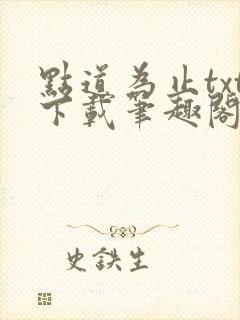 點道為止txt
下載筆趣閣
史鉄生